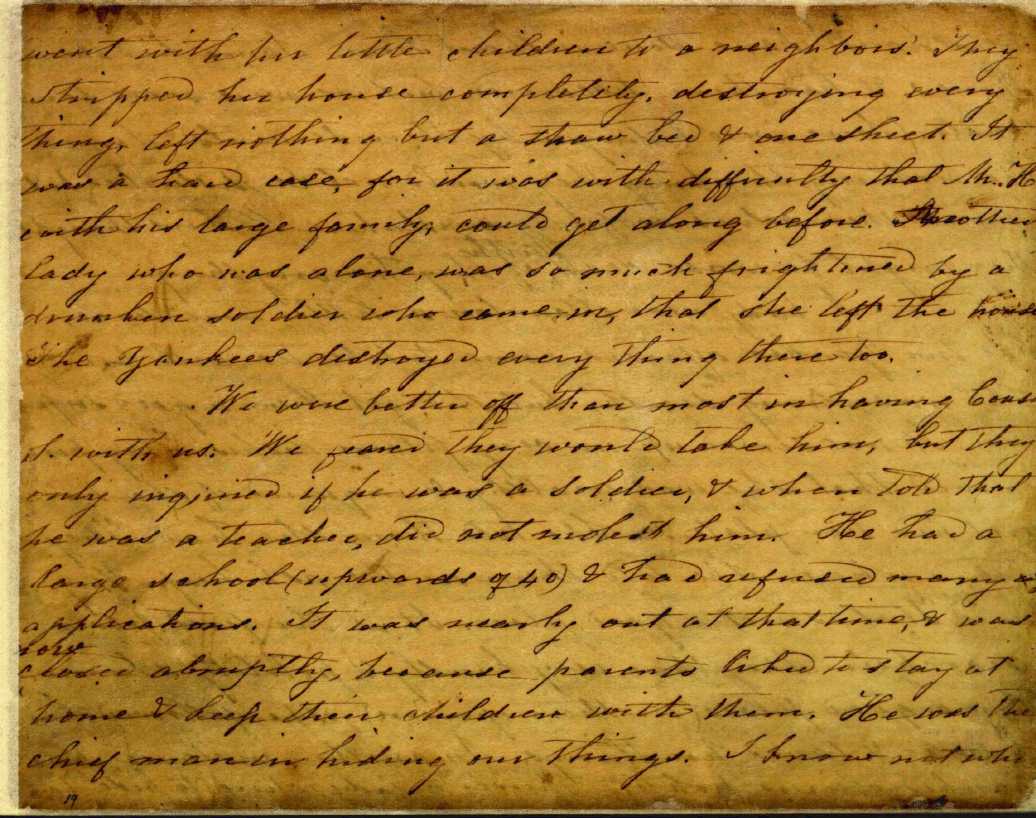 went with her little children to a neighbors'. They
stripped her house completely, destroying every
thing, left nothing but a straw bed & one sheet. It
was a hard case, for it was with difficulty that Mr. H
with his large family, could get along before. Another
lady who was alone, was so much frightened by a
drunken soldier who came in, that she left the house
The Yankees destroyed every thing there too.
We were better off than most in having Cous
S. with us. We feared they would take him, but they
only inquired if he was a soldier, & when told that
he was a teacher, did not molest him. He had a
large school (upwards of 40) & had refused many
applications. It was nearly out at that time, & was
now
closed abruptly, because parents liked to stay at
home & keep their children with them. He was the
chief man in hiding our things. I know not wh
19